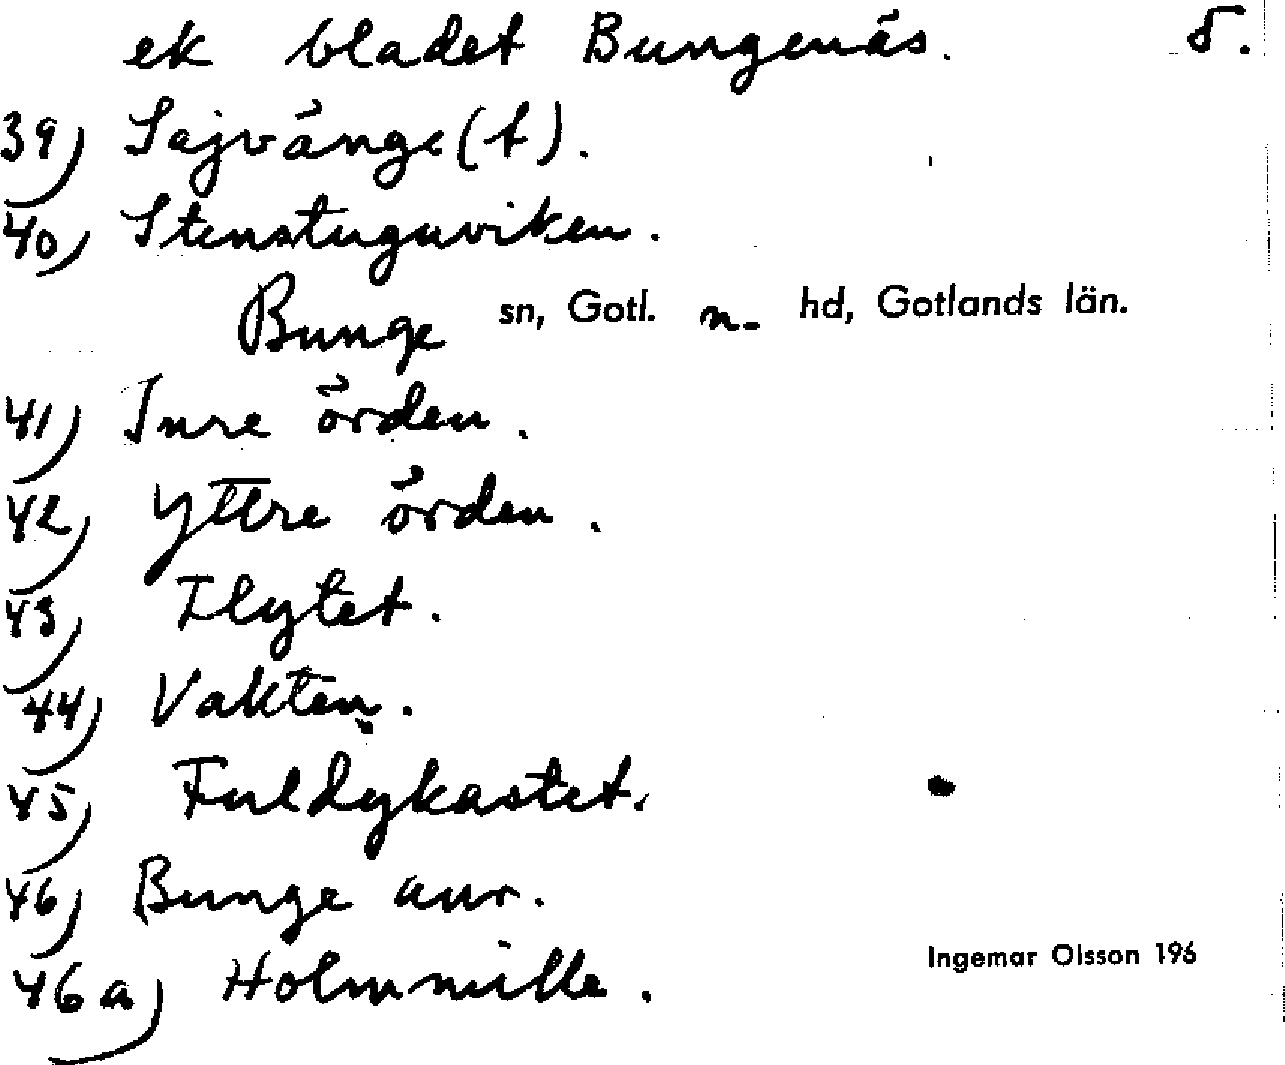 ek bladet Bungenäs. 5.
39) Sajvänge(t).
40) Stenstuguviken.
Bunge sn, Gotl. n. hd, Gotlands län.
41) Inre örden.
42) Yttre örden.
43) Flytet.
44) Vakten.
45) Fuldykastet.
46) Bunge aur.
46a) Holmmille.
Ingemar Olsson 196